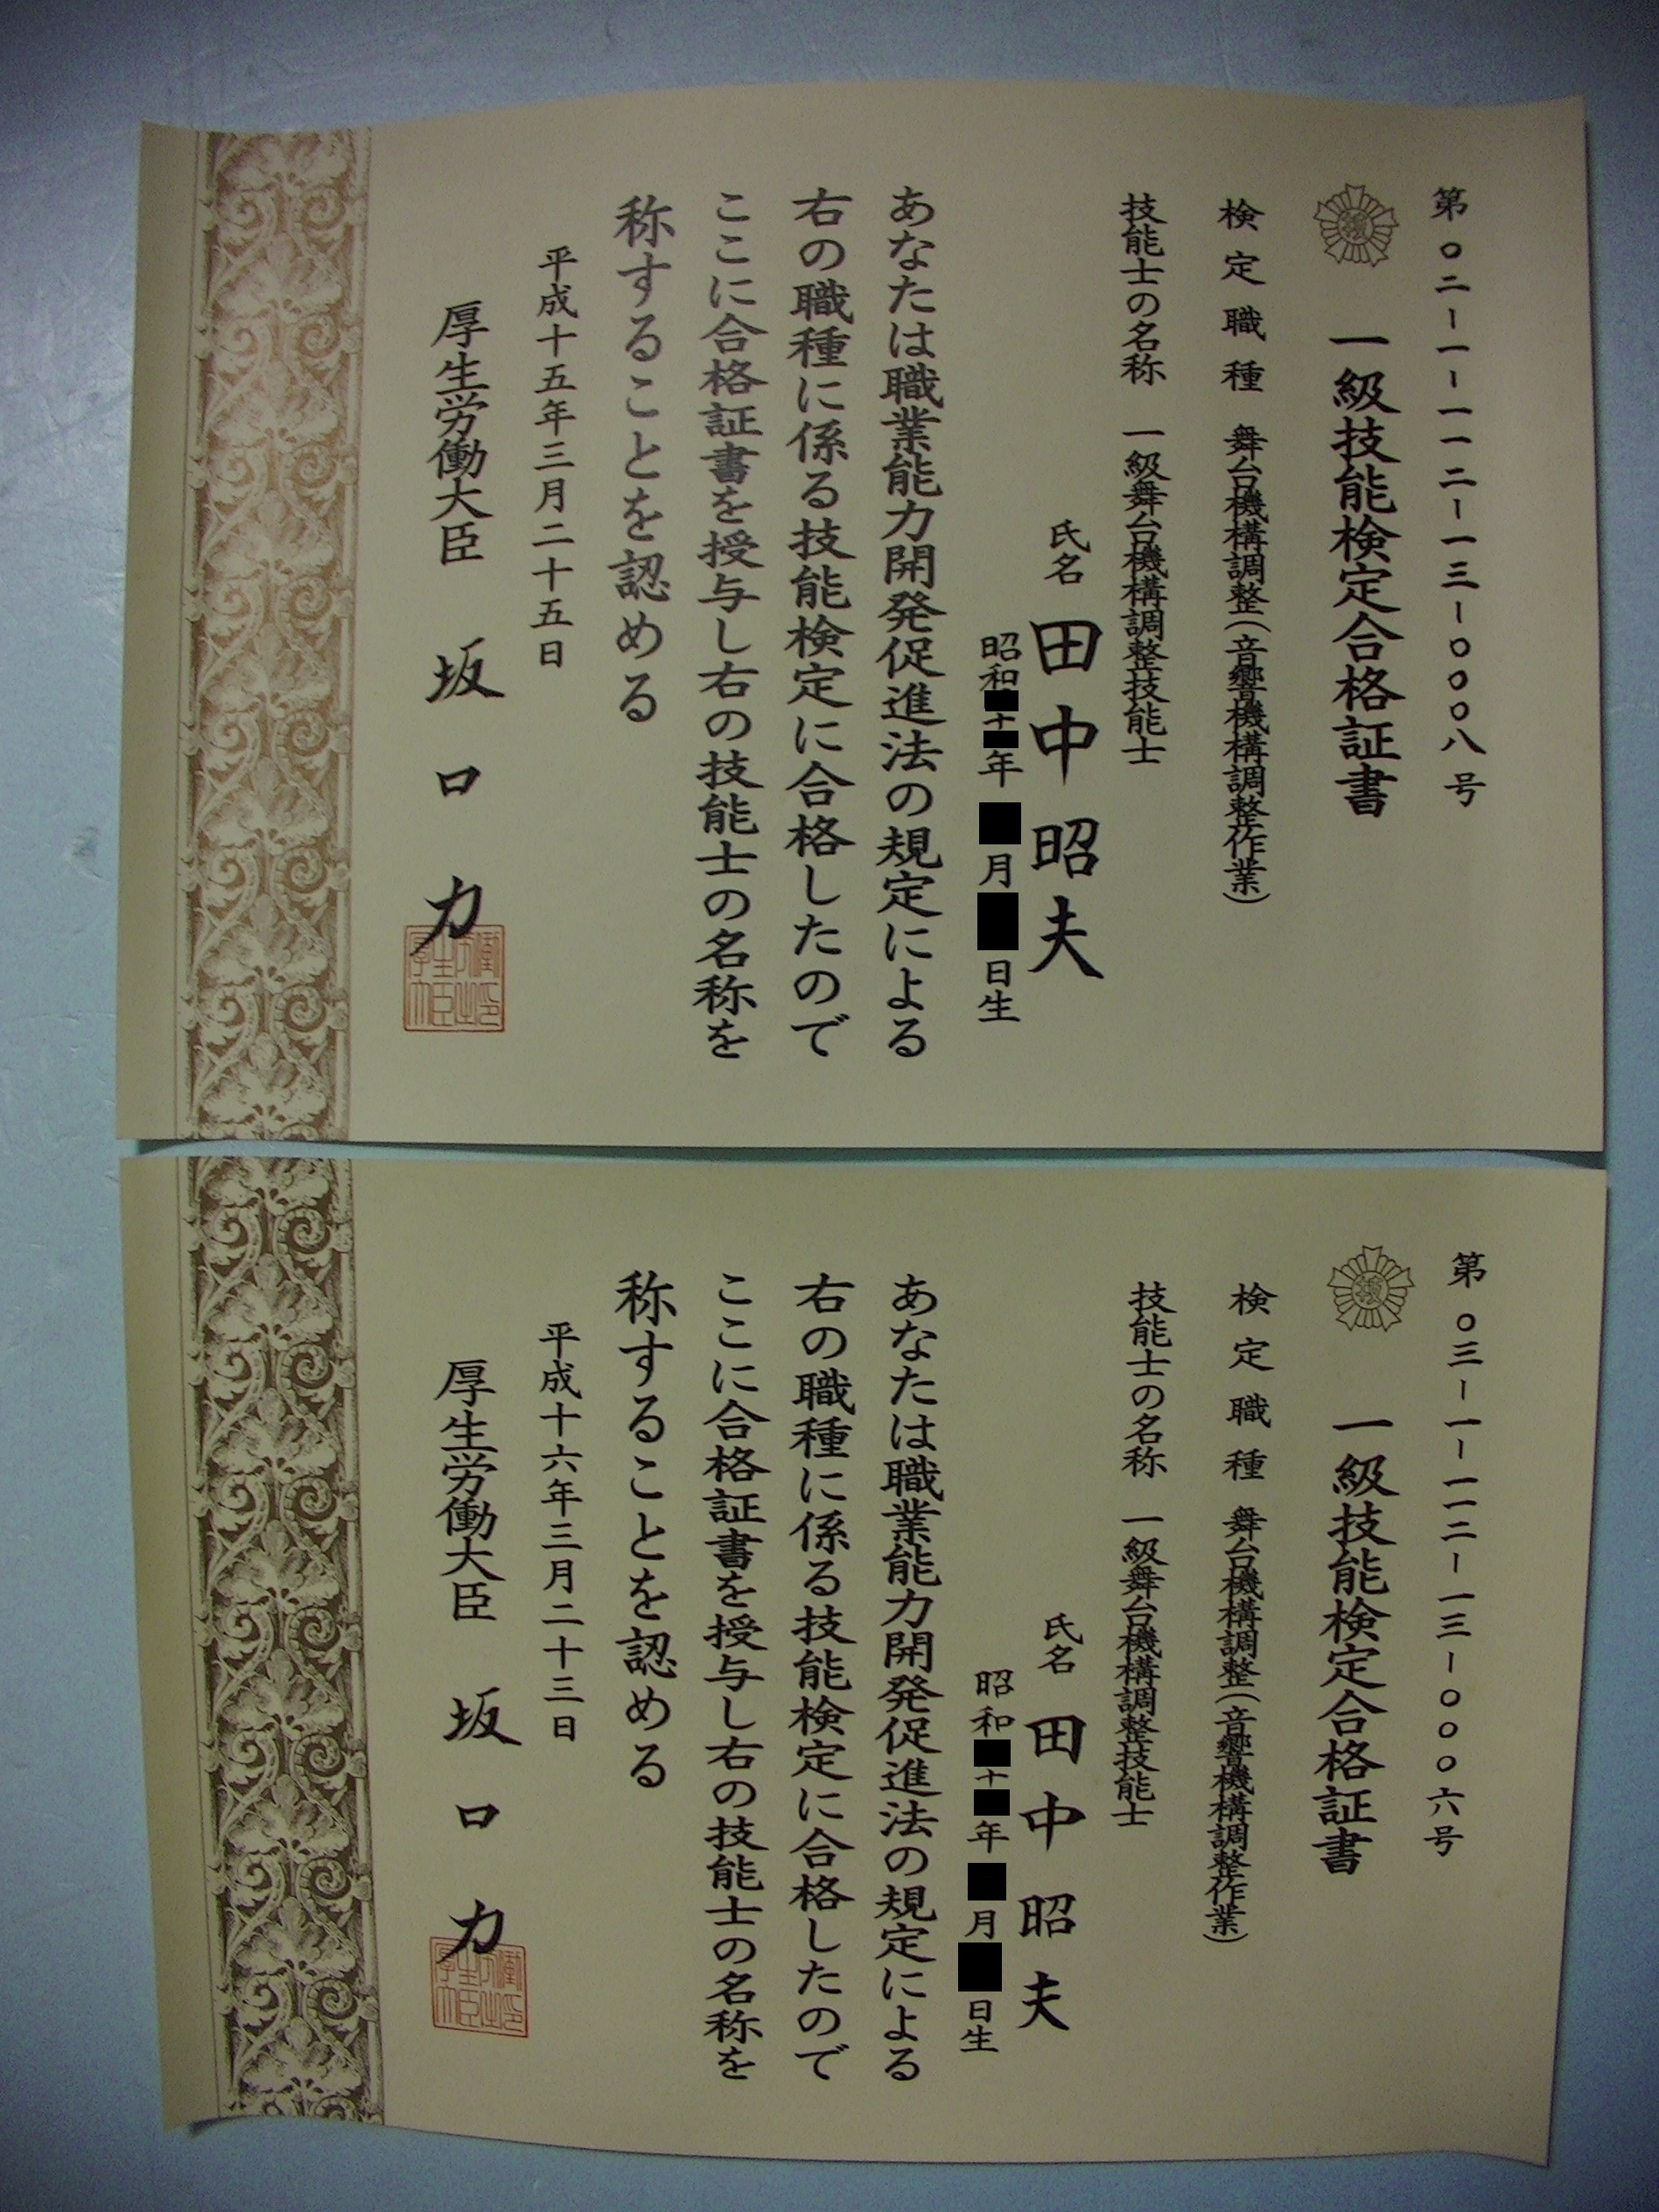 第〇二-一-一一二-一三-〇〇〇八号
一級技能検定合格証書
検定職種 舞台機構調整(音響機構調整作業)
技能士の名称 一級舞台機構調整技能士
氏名 田中昭夫
昭和 十 年 月 日生
あなたは職業能力開発促進法の規定による
右の職種に係る技能検定に合格したので
ここに合格証書を授与し右の技能士の名称を
称することを認める
平成十五年三月二十五日
厚生労働大臣 坂口力
第〇三-一-一一二-一三-〇〇〇六号
一級技能検定合格証書
検定職種 舞台機構調整(音響機構調整作業)
技能士の名称 一級舞台機構調整技能士
氏名 田中昭夫
昭和 十 年 月 日生
あなたは職業能力開発促進法の規定による
右の職種に係る技能検定に合格したので
ここに合格証書を授与し右の技能士の名称を
称することを認める
平成十六年三月二十三日
厚生労働大臣 坂口力